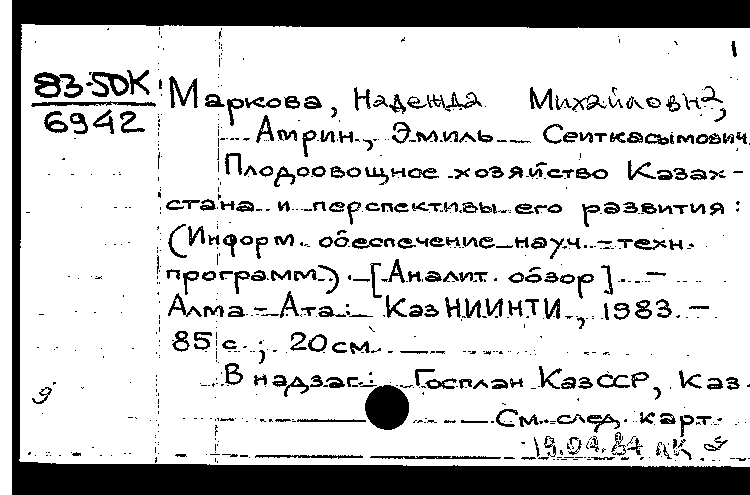 1
83-5DK
6942
Маркова, Надежда Михайловна,
Атрин, Эмиль Сеиткасымович.
Плодоовощное хозяйство Казах-
стана и перспективы его развития:
(Информ. обеспечение науч.-техн.
программ). - [Аналит. обзор]. —
Алма-Ата: КазНИИНТИ, 1983. —
85 с.; 20 см.
В надзаг.: Госплан КазССР, Каз.
См. след. карт.
19.04.84